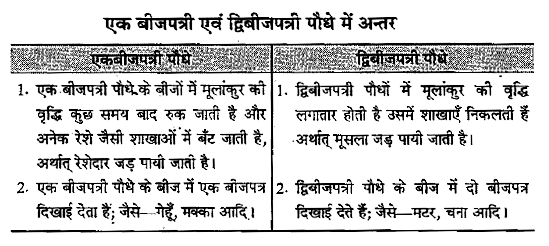 एक बीजपत्री एवं द्विबीजपत्री पौधे में अन्तर
एकबीजपत्री पौधे
द्विबीजपत्री पौधे
1. एक बीजपत्री पौधे के बीजों में मूलांकुर की
वृद्धि कुछ समय बाद रुक जाती है और
अनेक रेशे जैसी शाखाओं में बँट जाती है,
अर्थात् रेशेदार जड़ पायी जाती है।
1. द्विबीजपत्री पौधों में मूलांकुर की वृद्धि
लगातार होती है उसमें शाखाएँ निकलती हैं
अर्थात् मूसला जड़ पायी जाती है।
2. एक बीजपत्री पौधे के बीज में एक बीजपत्र
दिखाई देता है; जैसे—गेहूँ, मक्का आदि।
2. द्विबीजपत्री पौधे के बीज में दो बीजपत्र
दिखाई देते हैं; जैसे—मटर, चना आदि।